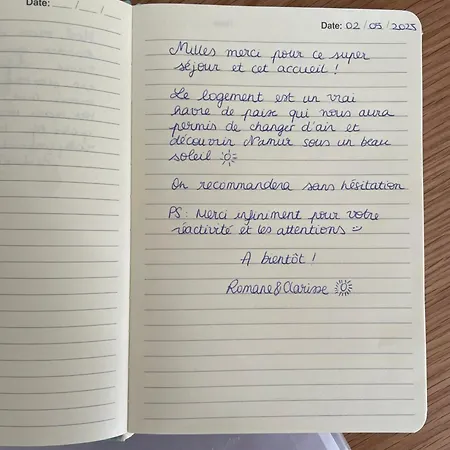 Date: __/__/__
Date: 02/05/2025
Milles merci pour ce super
séjour et cet accueil !
Le logement est un vrai
havre de paix qui nous aura
permis de changer d'air et
découvrir Namur sous un beau
soleil
On recommandera sans hésitation
PS : Merci infiniment pour votre
réactivité et les attentions
A bientôt !
Romane&Clarisse